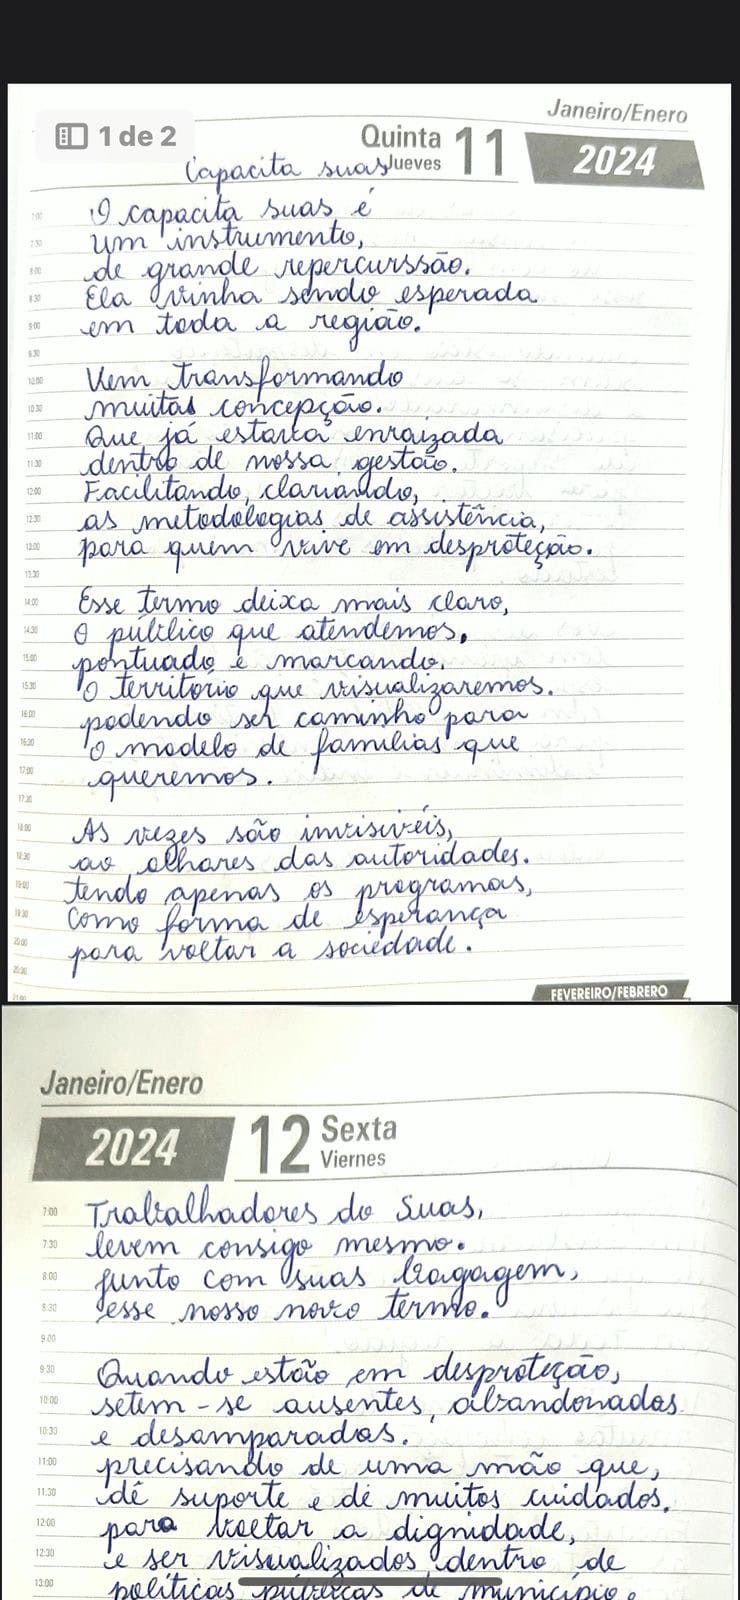 1 de 2
Janeiro/Enero
Quinta 11 2024
Jueves
Capacita suas
7:00 O capacita suas é
7:30 um instrumento,
8:00 de grande repercurssão.
8:30 Ela vinha sendo esperada
9:00 em toda a região.
9:30
10:00 Vem transformando
10:30 muitas concepção.
11:00 Que já estava enraizada
11:30 dentro de nossa gestão.
12:00 Facilitando, clariando,
12:30 as metodologias de assistência,
13:00 para quem vive em desproteção.
13:30
14:00 Esse termo deixa mais claro,
14:30 O público que atendemos,
15:00 pontuado e marcando.
15:30 O território que visualizaremos.
16:00 podendo ser caminho para
16:30 o modelo de famílias que
17:00 queremos.
17:30
18:00 As vezes são invisivéis,
18:30 ao olhares das autoridades.
19:00 tendo apenas os programas,
19:30 Como forma de esperança
20:00 para voltar a sociedade.
20:30
21:00
FEVEREIRO/FEBRERO
Janeiro/Enero
2024 12 Sexta
Viernes
7:00 Trabalhadores do Suas,
7:30 levem consigo mesmo.
8:00 junto com suas bagagem,
8:30 esse nosso novo termo.
9:00
9:30 Quando estão em desproteção,
10:00 setem-se ausentes, abandonados
10:30 e desamparados.
11:00 precisando de uma mão que,
11:30 dê suporte e dê muitos cuidados.
12:00 para voltar a dignidade,
12:30 e ser visualizados dentro de
13:00 políticas públicas de município.